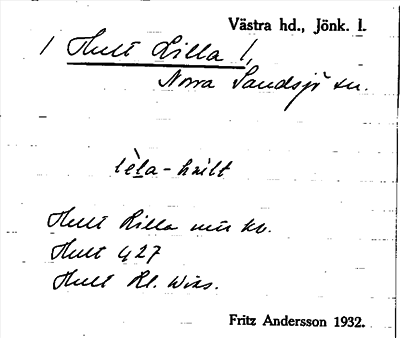 Västra hd., Jönk. l.
/ Hult Lilla /,
Norra Sandsjö sn.
lèla-hult
Hult Lilla
Hult 427
Hult Ll. Wiss.
Fritz Andersson 1932.